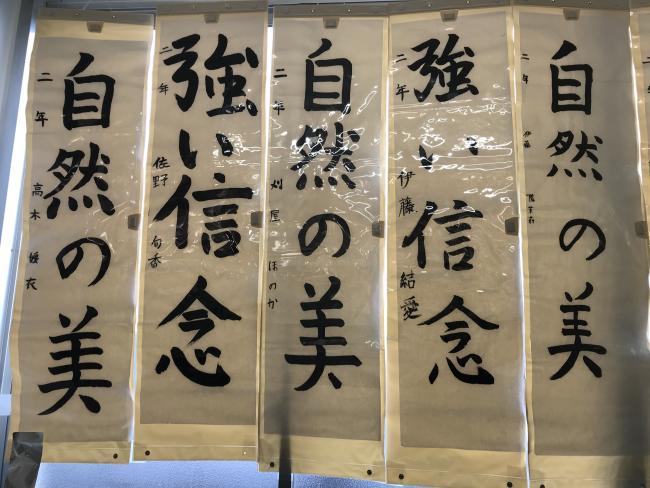 自然の美
二年 伊藤
強い信念
二年 伊藤 結愛
自然の美
二年 刈屋 ほのか
強い信念
二年 佐野
自然の美
二年 高木